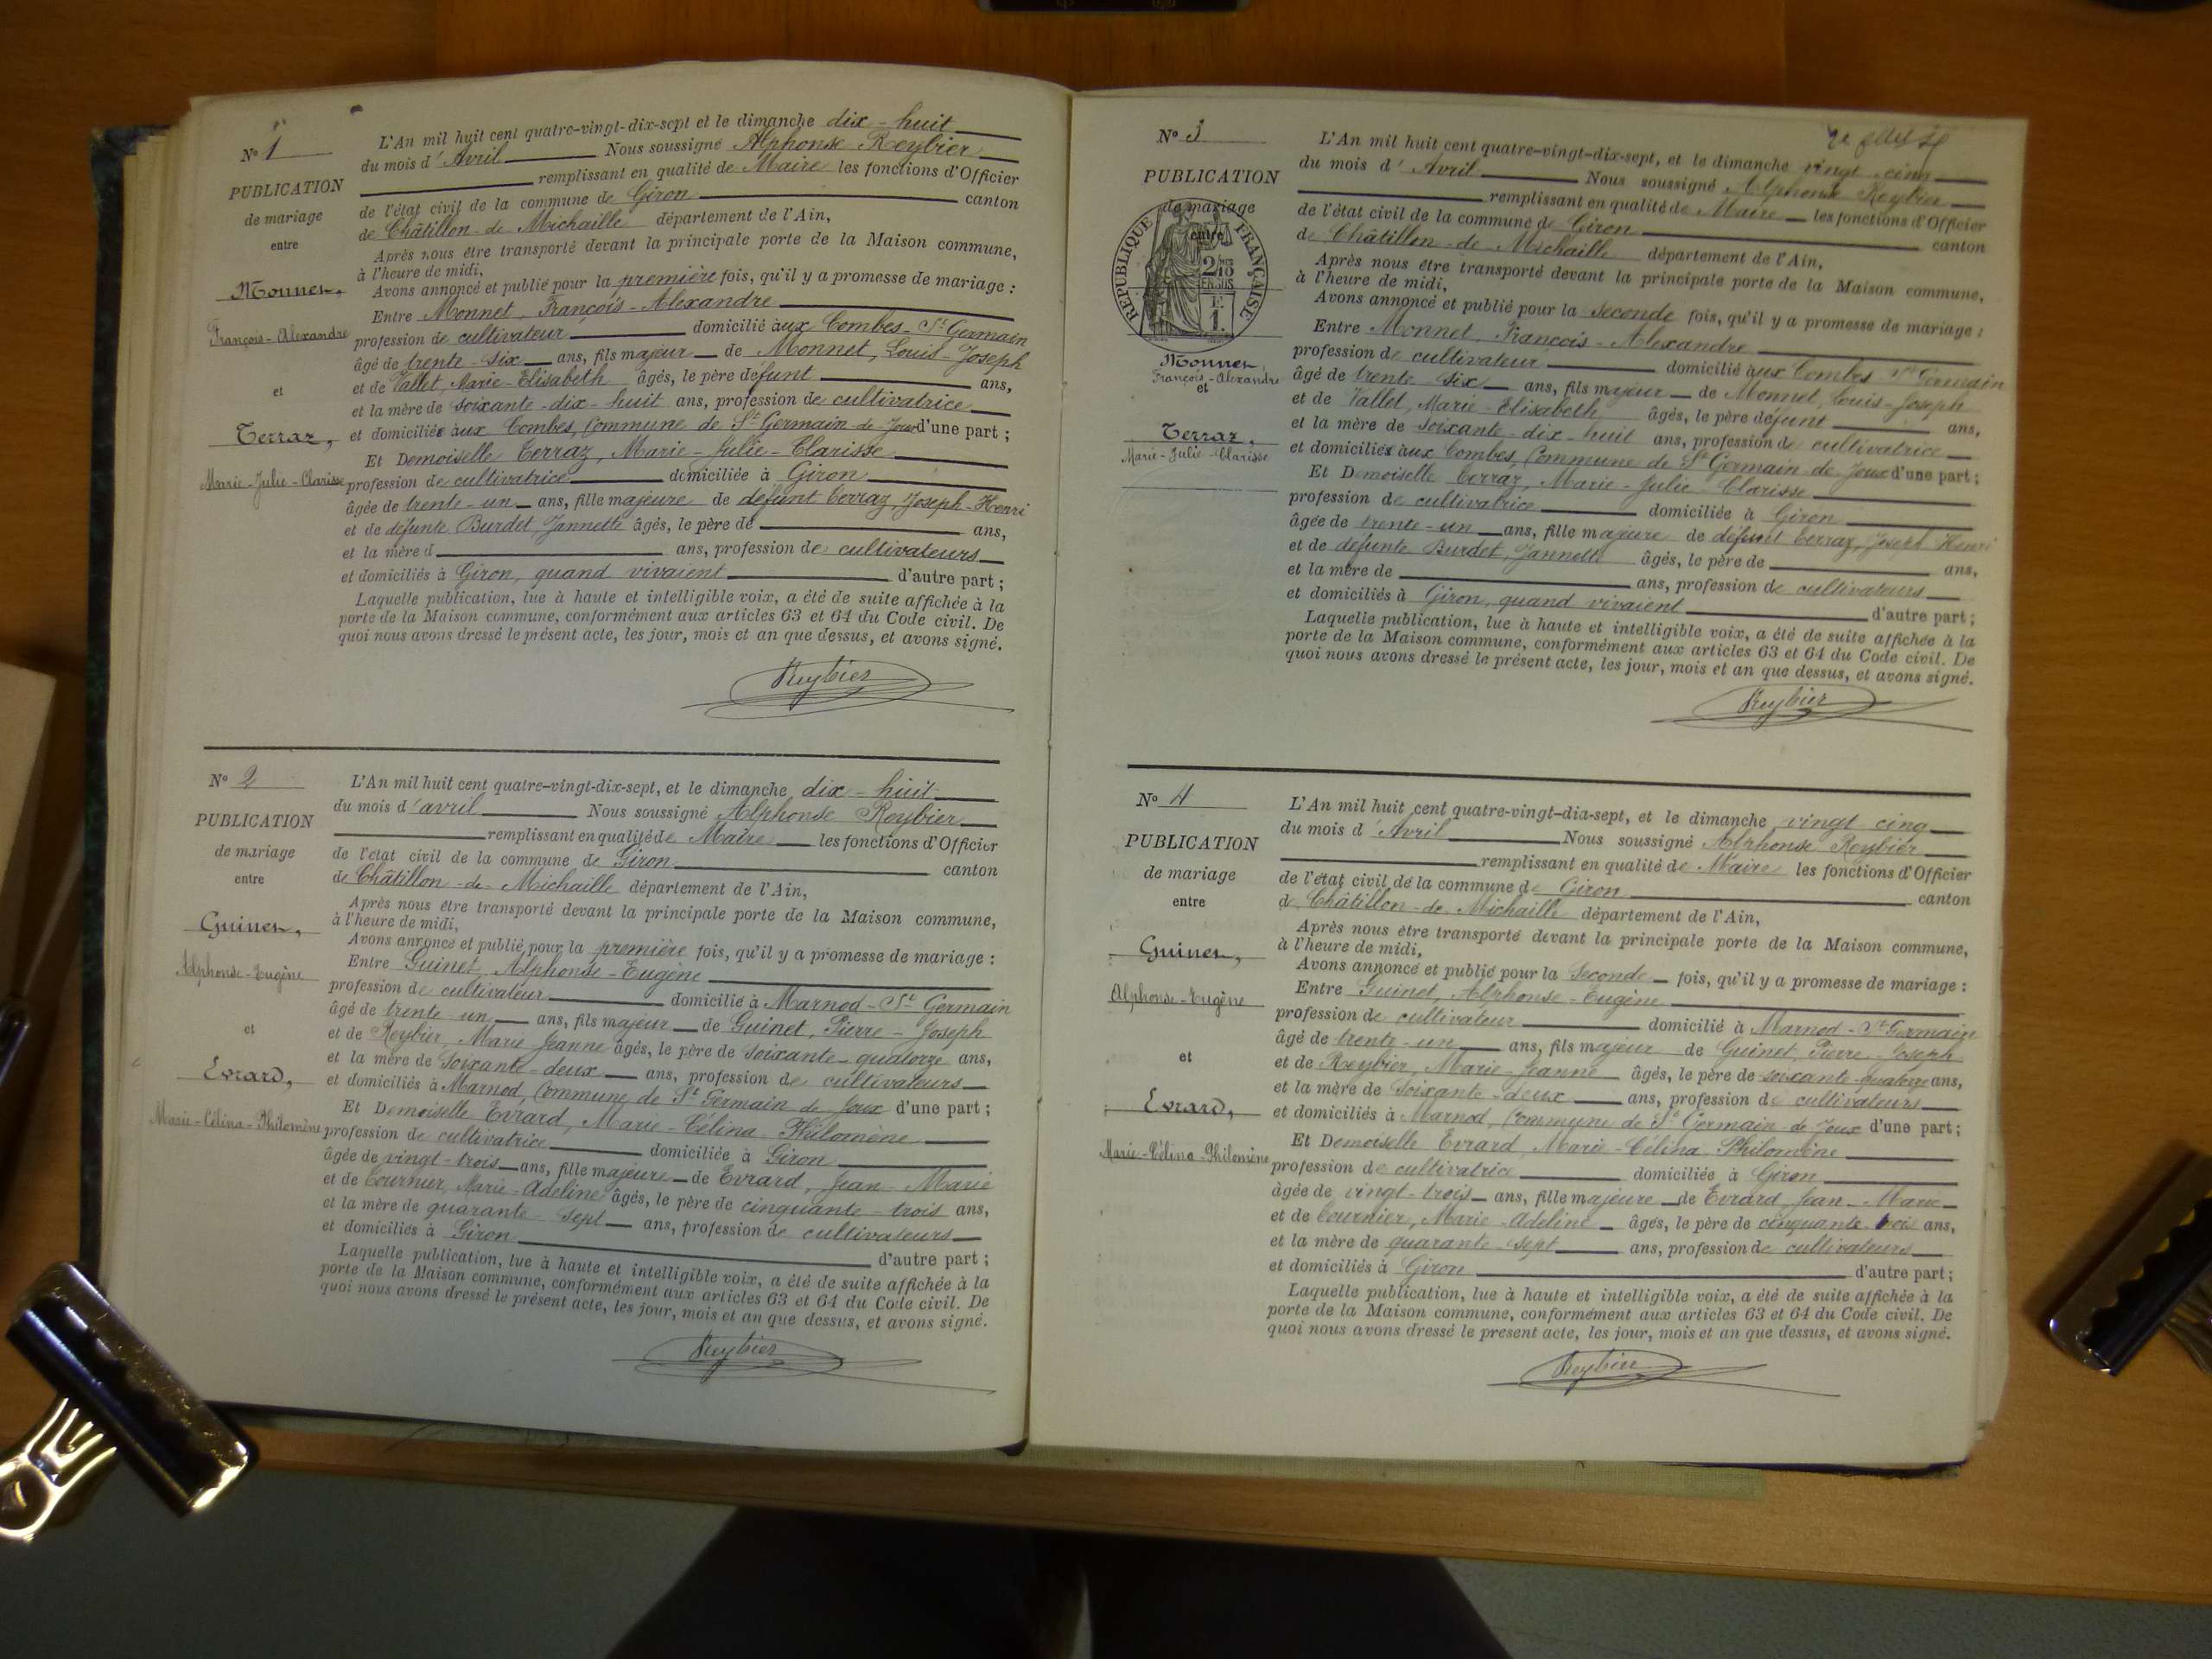 N° 1
PUBLICATION
de mariage
entre
Monnet,
François-Alexandre
et
Terraz,
Marie-Julie-Clarisse
L'An mil huit cent quatre-vingt-dix-sept et le dimanche dix-huit
du mois d'Avril Nous soussigné Alphonse Reybier
remplissant en qualité de Maire les fonctions d'Officier
de l'état civil de la commune de Giron canton
de Châtillon-de-Michaille département de l'Ain,
Après nous être transporté devant la principale porte de la Maison commune,
à l'heure de midi,
Avons annoncé et publié pour la première fois, qu'il y a promesse de mariage :
Entre Monnet, François-Alexandre
profession de cultivateur domicilié aux Combes-St Germain
âgé de trente-six ans, fils majeur de Monnet, Louis-Joseph
et de Vallet, Marie-Elisabeth âgés, le père défunt ans,
et la mère de soixante-dix-huit ans, profession de cultivatrice
et domiciliée aux Combes, Commune de St Germain-de-Joux d'une part ;
Et Demoiselle Terraz, Marie-Julie-Clarisse
profession de cultivatrice domiciliée à Giron
âgée de trente-un ans, fille majeure de défunt Terraz, Joseph-Henri
et de défunte Burdet, Jannette âgés, le père de ans,
et la mère d ans, profession de cultivateurs
et domiciliés à Giron, quand vivaient d'autre part ;
Laquelle publication, lue à haute et intelligible voix, a été de suite affichée à la
porte de la Maison commune, conformément aux articles 63 et 64 du Code civil. De
quoi nous avons dressé le présent acte, les jour, mois et an que dessus, et avons signé.
Reybier
N° 2
PUBLICATION
de mariage
entre
Guinet,
Alphonse-Eugène
et
Evrard,
Marie-Célina-Philomène
L'An mil huit cent quatre-vingt-dix-sept, et le dimanche dix-huit
du mois d'avril Nous soussigné Alphonse Reybier
remplissant en qualité de Maire les fonctions d'Officier
de l'état civil de la commune de Giron canton
de Châtillon-de-Michaille département de l'Ain,
Après nous être transporté devant la principale porte de la Maison commune,
à l'heure de midi,
Avons annoncé et publié pour la première fois, qu'il y a promesse de mariage :
Entre Guinet, Alphonse-Eugène
profession de cultivateur domicilié à Marnod-St Germain
âgé de trente-un ans, fils majeur de Guinet, Pierre-Joseph
et de Reybier, Marie Jeanne âgés, le père de soixante-quatorze ans,
et la mère de soixante-deux ans, profession de cultivateurs
et domiciliés à Marnod, Commune de St Germain de Joux d'une part ;
Et Demoiselle Evrard, Marie-Célina-Philomène
profession de cultivatrice domiciliée à Giron
âgée de vingt-trois ans, fille majeure de Evrard, Jean-Marie
et de Tournier, Marie-Adeline âgés, le père de cinquante-trois ans,
et la mère de quarante-sept ans, profession de cultivateurs
et domiciliés à Giron d'autre part ;
Laquelle publication, lue à haute et intelligible voix, a été de suite affichée à la
porte de la Maison commune, conformément aux articles 63 et 64 du Code civil. De
quoi nous avons dressé le présent acte, les jour, mois et an que dessus, et avons signé.
Reybier
N° 3
PUBLICATION
de mariage
entre
RÉPUBLIQUE FRANÇAISE
2/10 EN SUS
1F.
Monnet,
François-Alexandre
et
Terraz,
Marie-Julie-Clarisse
L'An mil huit cent quatre-vingt-dix-sept, et le dimanche vingt-cinq
du mois d'Avril Nous soussigné Alphonse Reybier
remplissant en qualité de Maire les fonctions d'Officier
de l'état civil de la commune de Giron canton
de Châtillon-de-Michaille département de l'Ain,
Après nous être transporté devant la principale porte de la Maison commune,
à l'heure de midi,
Avons annoncé et publié pour la seconde fois, qu'il y a promesse de mariage :
Entre Monnet, François-Alexandre
profession de cultivateur domicilié aux Combes St Germain
âgé de trente-six ans, fils majeur de Monnet, Louis-Joseph
et de Vallet, Marie-Elisabeth âgés, le père défunt ans,
et la mère de soixante-dix-huit ans, profession de cultivatrice
et domiciliés aux Combes, Commune de St Germain-de-Joux d'une part ;
Et Demoiselle Terraz, Marie-Julie-Clarisse
profession de cultivatrice domiciliée à Giron
âgée de trente-un ans, fille majeure de défunt Terraz, Joseph Henri
et de défunte Burdet, Jannette âgés, le père de ans,
et la mère de ans, profession de cultivateurs
et domiciliés à Giron, quand vivaient d'autre part ;
Laquelle publication, lue à haute et intelligible voix, a été de suite affichée à la
porte de la Maison commune, conformément aux articles 63 et 64 du Code civil. De
quoi nous avons dressé le présent acte, les jour, mois et an que dessus, et avons signé.
Reybier
N° 4
PUBLICATION
de mariage
entre
Guinet,
Alphonse-Eugène
et
Evrard,
Marie-Célina-Philomène
L'An mil huit cent quatre-vingt-dix-sept, et le dimanche vingt cinq
du mois d'Avril Nous soussigné Alphonse Reybier
remplissant en qualité de Maire les fonctions d'Officier
de l'état civil de la commune de Giron canton
d Châtillon-de-Michaille département de l'Ain,
Après nous être transporté devant la principale porte de la Maison commune,
à l'heure de midi,
Avons annoncé et publié pour la seconde fois, qu'il y a promesse de mariage :
Entre Guinet, Alphonse-Eugène
profession de cultivateur domicilié à Marnod-St Germain
âgé de trente-un ans, fils majeur de Guinet, Pierre-Joseph
et de Reybier, Marie-Jeanne âgés, le père de soixante-quatorze ans,
et la mère de soixante-deux ans, profession de cultivateurs
et domiciliés à Marnod, Commune de St Germain-de-Joux d'une part ;
Et Demoiselle Evrard, Marie-Célina-Philomène
profession de cultivatrice domiciliée à Giron
âgée de vingt-trois ans, fille majeure de Evrard Jean-Marie
et de Tournier, Marie-Adeline âgés, le père de cinquante-trois ans,
et la mère de quarante-sept ans, profession de cultivateurs
et domiciliés à Giron d'autre part ;
Laquelle publication, lue à haute et intelligible voix, a été de suite affichée à la
porte de la Maison commune, conformément aux articles 63 et 64 du Code civil. De
quoi nous avons dressé le présent acte, les jour, mois et an que dessus, et avons signé.
Reybier